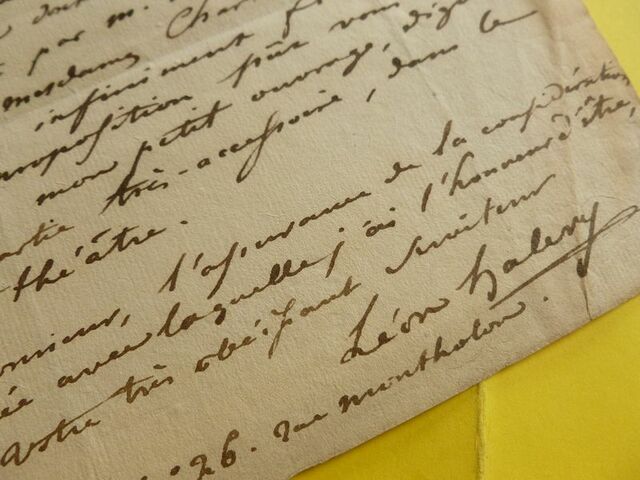 par m.
mesdames Char
infiniment
proposition que vous
mon petit ouvrage, dig
partie très-accessoire, dans le
théâtre.
onsieur, l'assurance de la considération
ée avec laquelle j'ai l'honneur d'être,
votre très obéissant serviteur
Léon halevy
26. rue montholon.